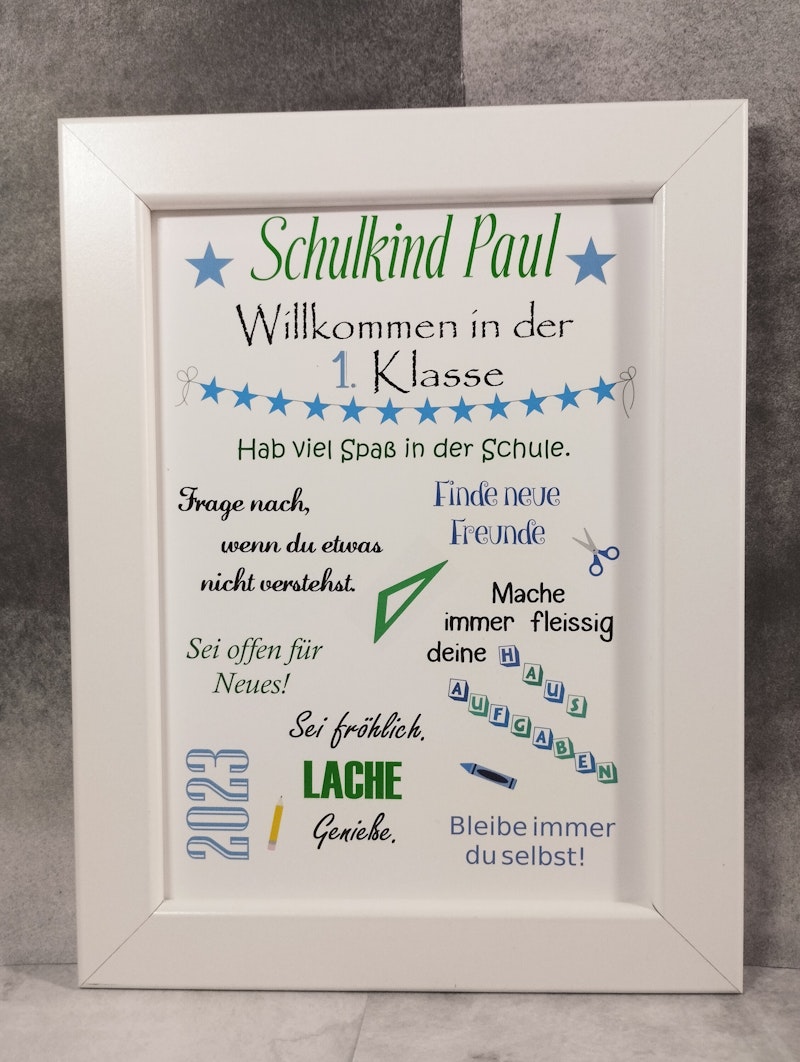 Schulkind Paul
Willkommen in der
1. Klasse
Hab viel Spaß in der Schule.
Frage nach,
wenn du etwas
nicht verstehst.
Finde neue
Freunde
Mache
immer fleissig
deine HAUS
AUFGABEN
Sei offen für
Neues!
Sei fröhlich.
LACHE
Genieße.
2023
Bleibe immer
du selbst!